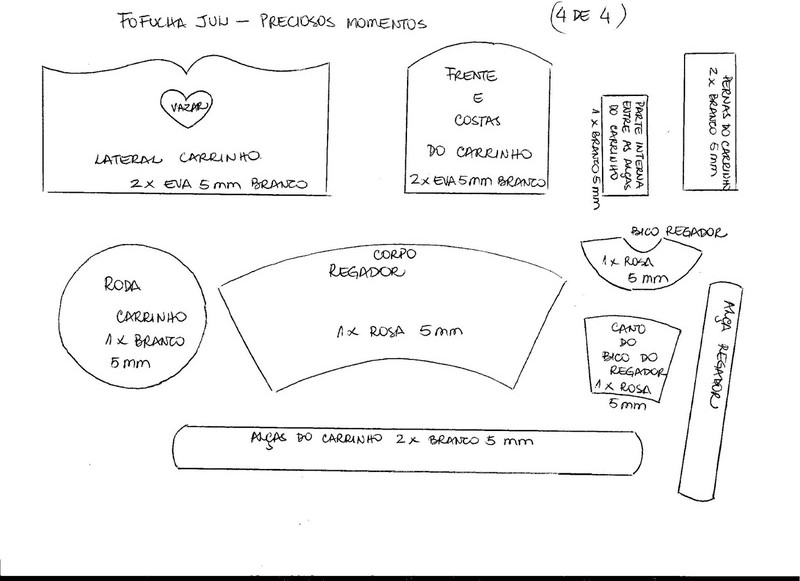 FOFUCHA JUJU – PRECIOSOS MOMENTOS
(4 DE 4)
VAZAR
LATERAL CARRINHO
2x EVA 5mm BRANCO
FRENTE
E
COSTAS
DO CARRINHO
2x EVA 5mm BRANCO
PARTE INTERNA
ENTRE AS ALÇAS
DO CARRINHO
1x BRANCO 5mm
PERNAS DO CARRINHO
2x BRANCO 5mm
RODA
CARRINHO
1x BRANCO
5mm
CORPO
REGADOR
1x ROSA 5mm
BICO REGADOR
1x ROSA
5mm
CANO
DO
BICO DO
REGADOR
1x ROSA
5mm
ALÇA REGADOR
ALÇAS DO CARRINHO 2x BRANCO 5mm